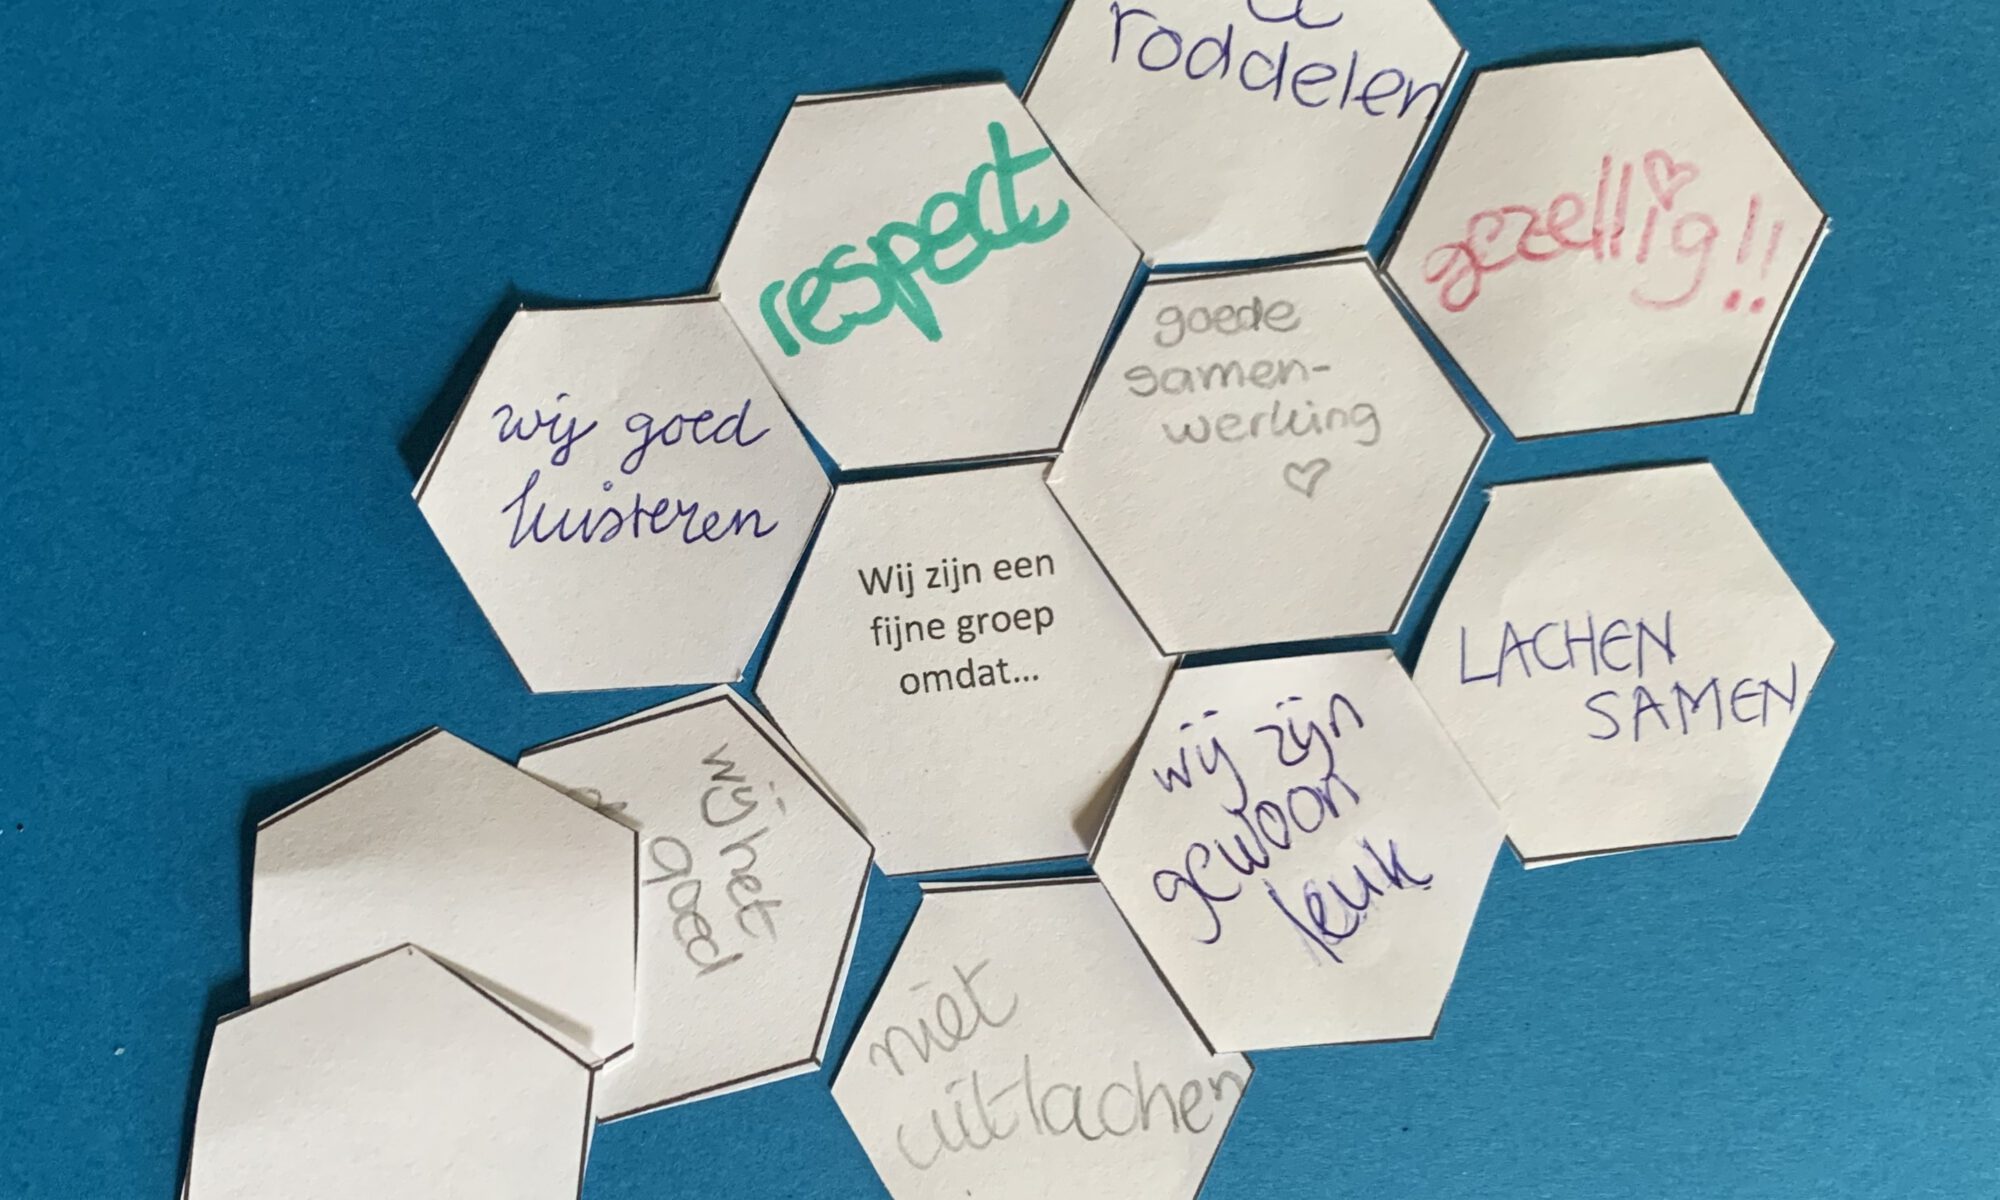 roddelen
respect
gezellig!!
goede
samen-
werking
wij goed
luisteren
Wij zijn een
fijne groep
omdat...
LACHEN
SAMEN
wij zijn
gewoon
leuk
wij het
goed
niet
uitlachen